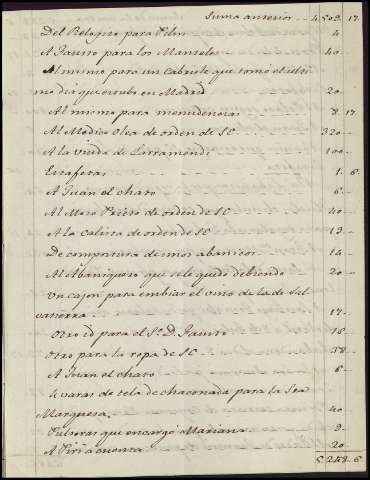 Suma anterior - - 4.503. 17.
Del Relogero para Pilin 4
A Fausto para los Manteles 40 -
Al mismo para un Cabriole que tomó el ulti-
mo dia que estubo en Madrid 20 -
Al mismo para menudencias 8. 17
Al Medico Olea de orden de SE 320 -
A la viuda de Larramendi 100 -
Estafetas 1. 6.
A Juan el chato 6 -
Al Mozo Prieto de orden de SE 40 -
A la Calisra de orden de SE 13 -
De compostura de unos abanicos 14 -
Al Abaniquero que se le quedó debiendo 20 -
Un cajon para embiar el vino de la de Sil-
vatierra 17 -
Otro id para el Sr. D. Fausto 16 -
Otro para la ropa de SE 38 -
A Juan el chato 6 -
4 varas de tela de chaconada para la Sra
Marquesa 40
Pulseras que encargó Mariana 9
A Piri a cuenta 20
5.248. 6